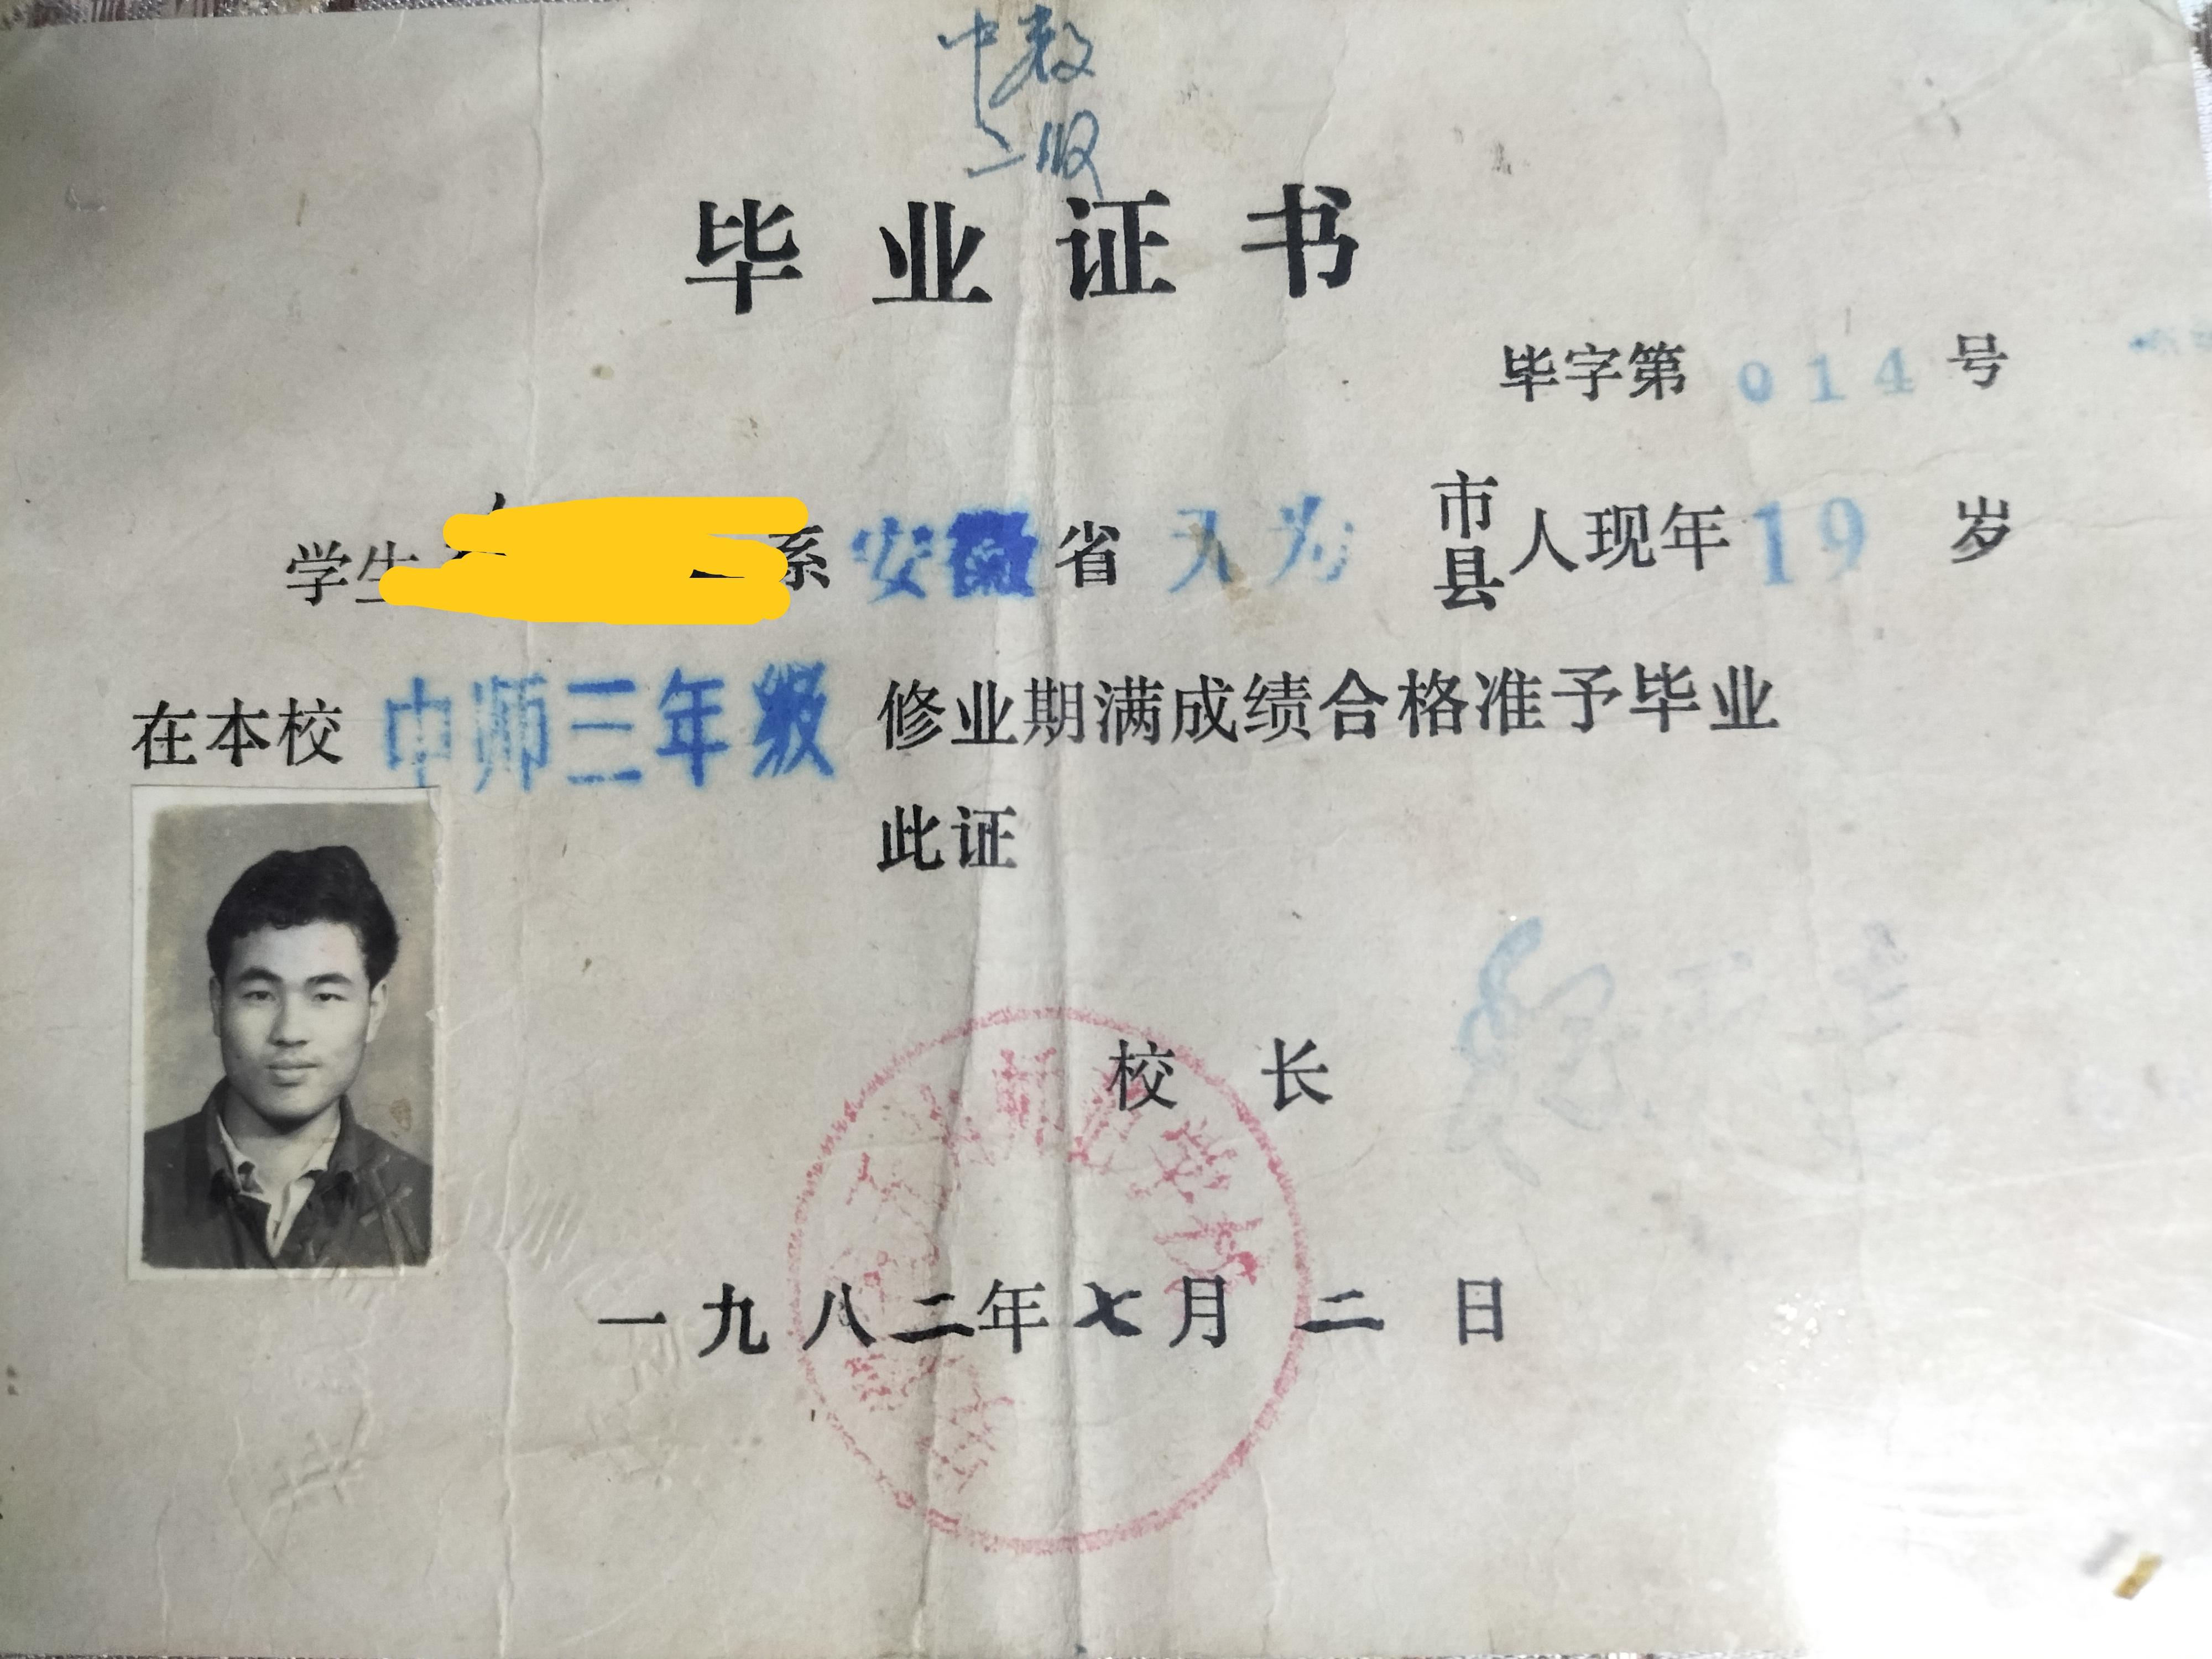 中教
二版
毕业证书
毕字第 014 号
学生 系 安徽 省 无为 市县 人现年 19 岁
在本校 中师三年级 修业期满成绩合格准予毕业
此证
校长
一九八二年七月二日